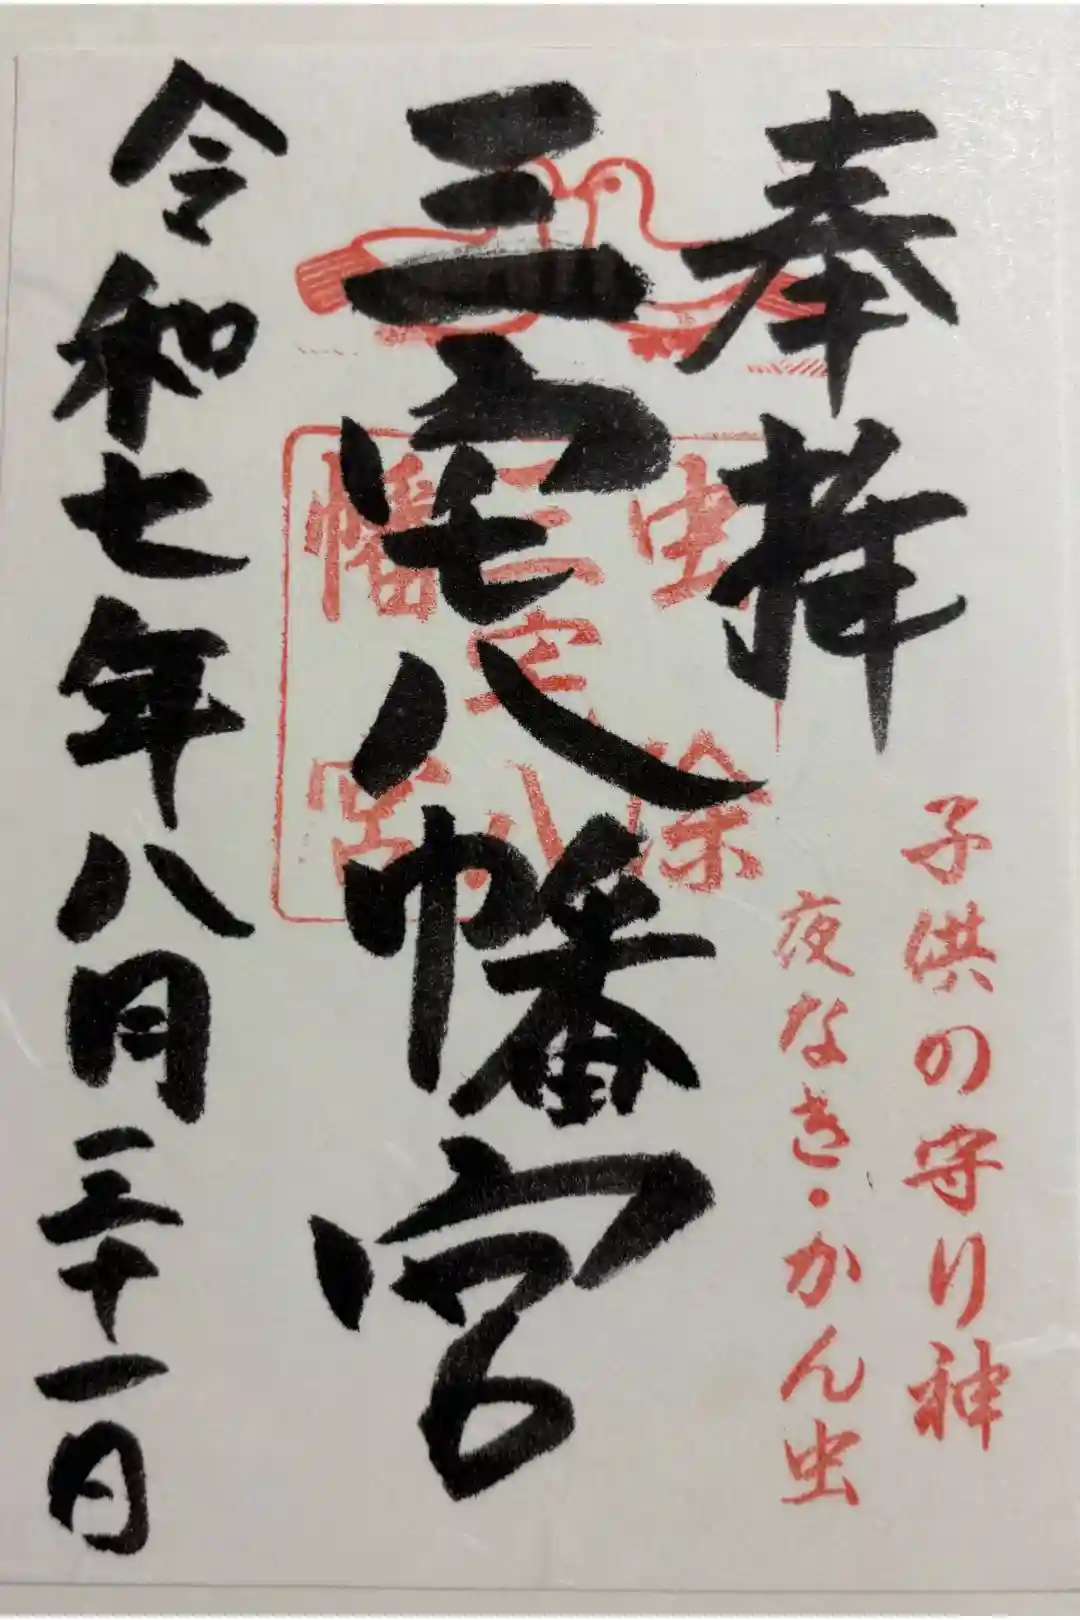 奉拝
子供の守り神
夜なき・かん虫
三宅八幡宮
虫除
三宅八
幡宮
令和七年八月三十一日